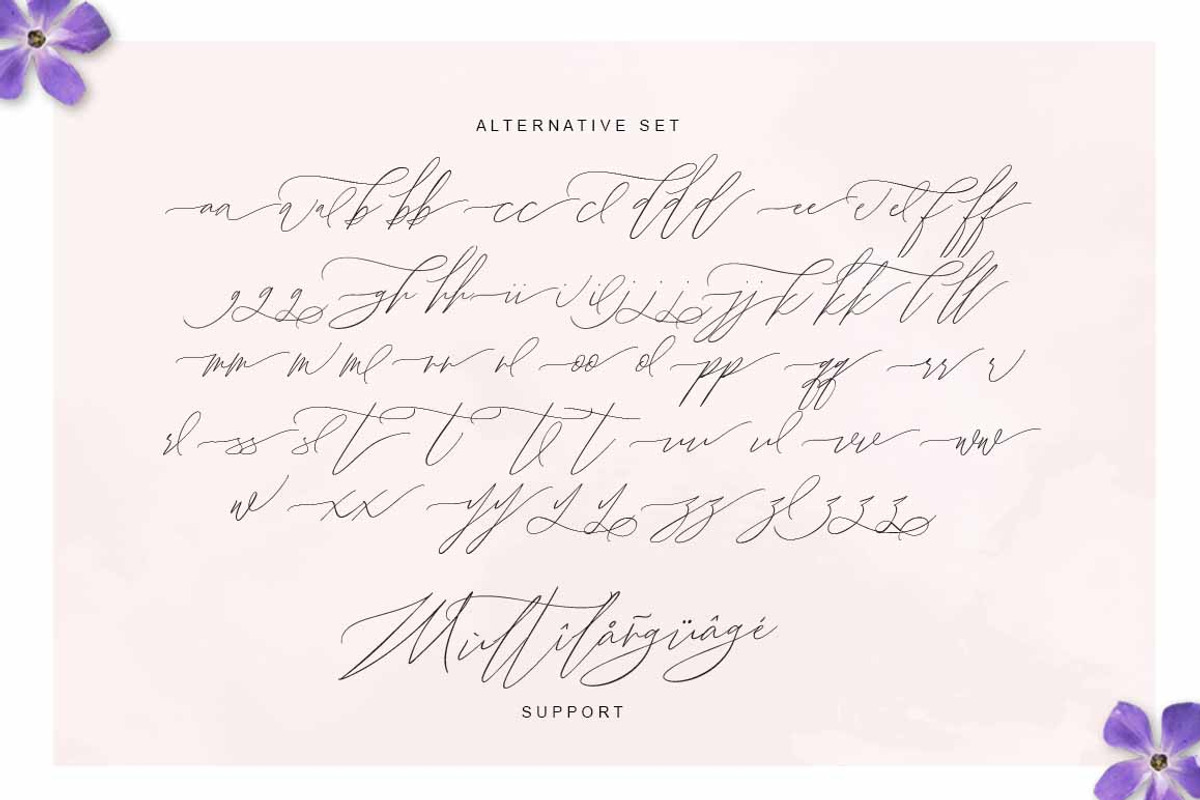 ALTERNATIVE SET
aa a al b bb cc c cl d dd ee e el f ff
g g g gh hh ii i il j j j jj k kk l ll
mm m ml nn nl oo ol pp qq rr r
rl ss sl t t tl t uu ul vv ww
w xx yy y y zz zl z z z
Mùltîlåñgüâgé
SUPPORT